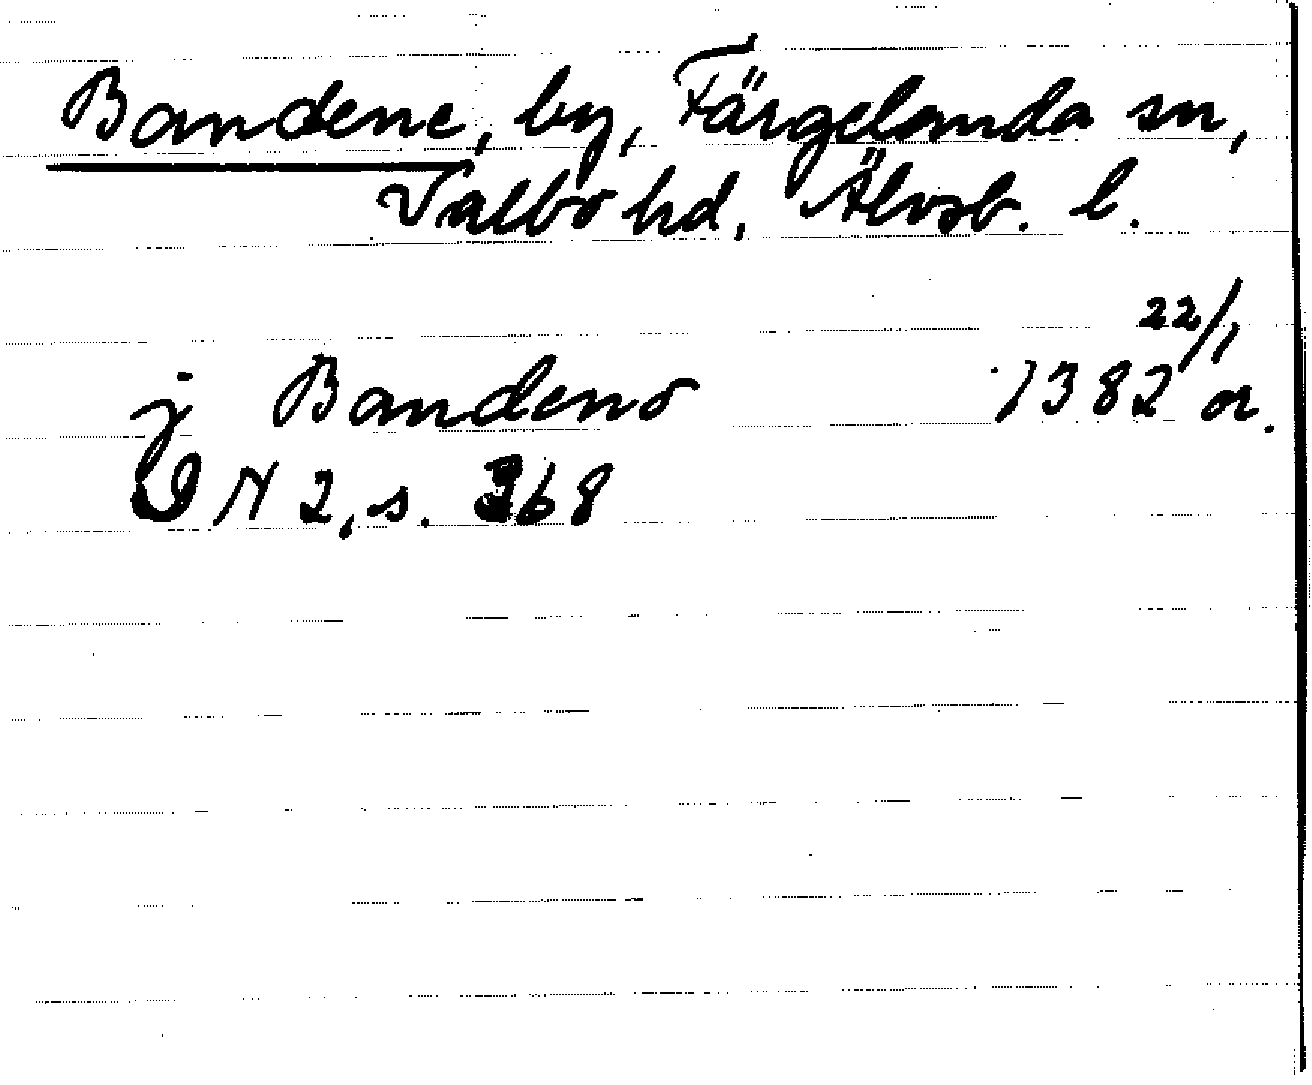 Bandene, by, Färgelanda sn,
Valbo hd, Älvsb. l.
j Bandeno 1382 22/1 or.
DN 2, s. 368